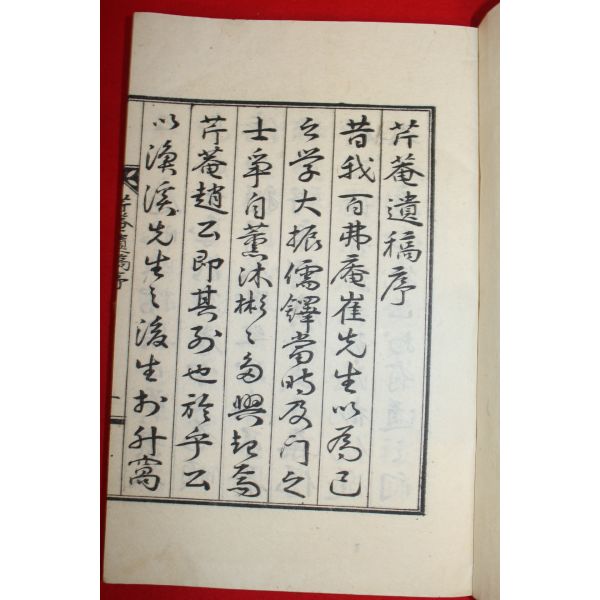 芹菴遺稿序
昔我百弗庵崔先生以爲己
之学大振儒鐸當時及門之
士爭自薰沐彬〻多興起焉
芹菴趙公即其列也於乎公
以漁溪先生之後生於升
芹菴遺稿序